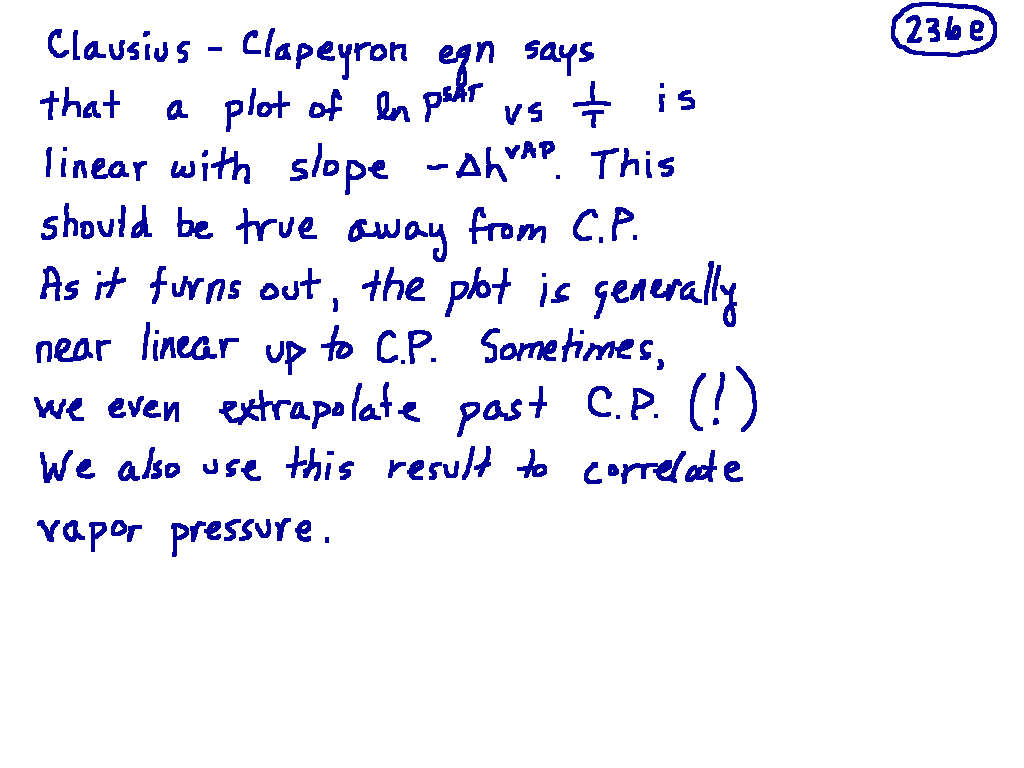 236e
Clausius - Clapeyron eqn says
that a plot of ln P^SAT vs 1/T is
linear with slope -Δh^VAP. This
should be true away from C.P.
As it turns out, the plot is generally
near linear up to C.P. Sometimes,
we even extrapolate past C.P. (!)
We also use this result to correlate
vapor pressure.